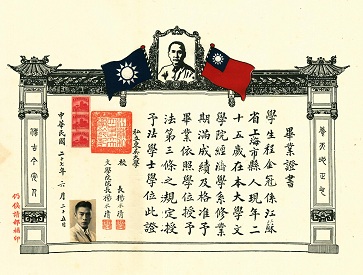 畢業證書
學生程金冠係江蘇
省上海市縣人現年二
十五歲在本大學文
學院經濟學系修業
期滿成績及格准予
畢業依照學位授予
法第三條之規定授
予法學士學位此證
私立東吳大學
校長楊永清
文學院院長楊永清
中華民國二十年六月二十五日
養天地正氣
法古今完人